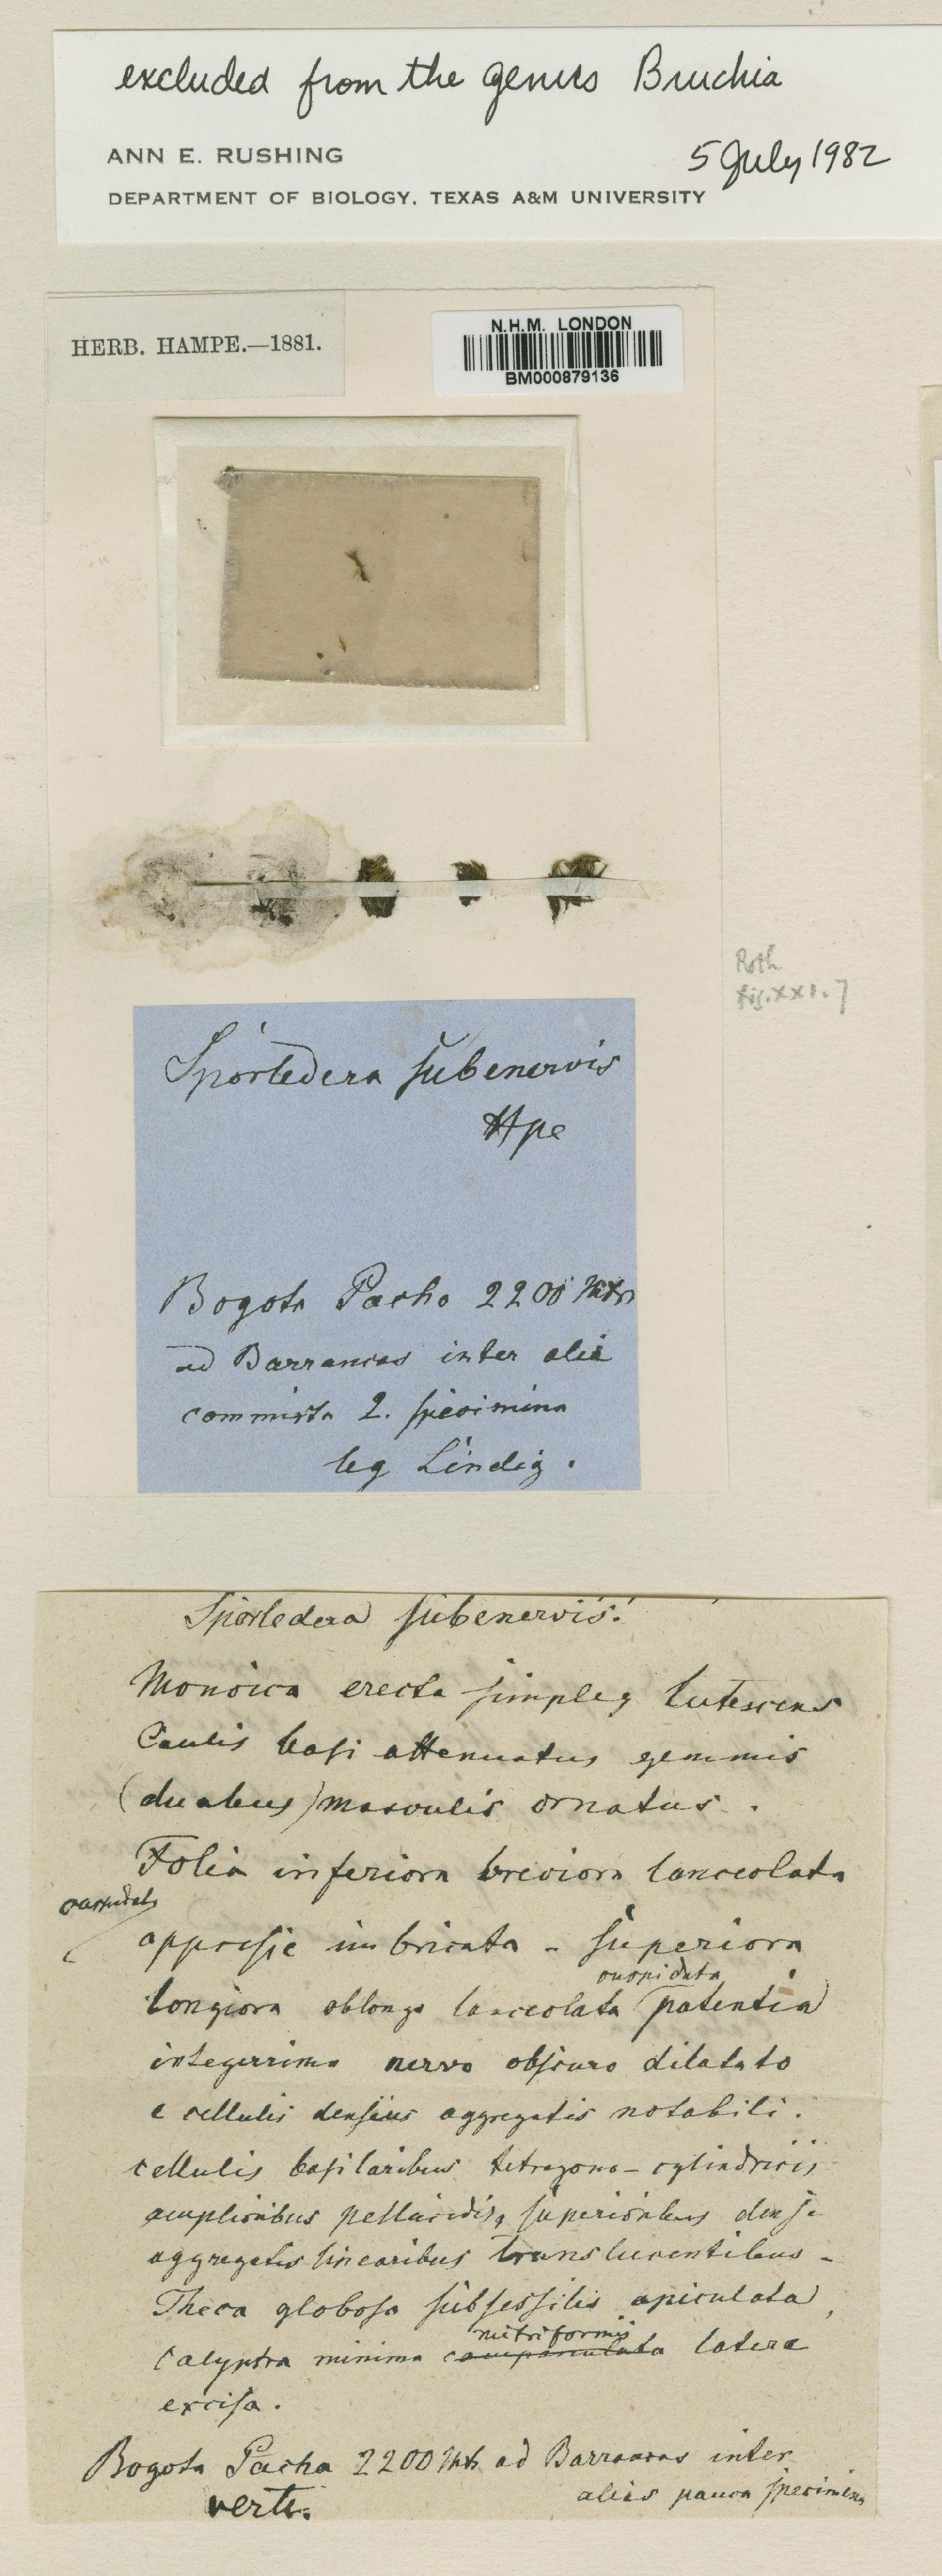 excluded from the genus Bruchia
ANN E. RUSHING
5 July 1982
DEPARTMENT OF BIOLOGY, TEXAS A&M UNIVERSITY
HERB. HAMPE.—1881.
N.H.M. LONDON
BM000879136
Roth
fig. XXI. 7
Sporledera subenervis
Hpe
Bogota Pacho 2200 Mtr
ad Barrancas inter alia
commixta 2. specimina
leg Lindig.
Sporledera subenervis.
Monoica erecta simplex lutescens
Caulis basi attenuatus gemmis
(duabus) masculis ornatus.
Folia inferiora breviora lanceolata
cuspidata
appresse imbricata - superiora
cuspidata
longiora oblongo lanceolata patentia
integerrima nervo obscuro dilatato
e cellulis densius aggregatis notabili.
cellulis basilaribus tetragono-cylindricis
amplioribus pellucidis, superioribus dense
aggregatis linearibus translucentibus -
Theca globosa subsessilis apiculata,
mitriformis
calyptra minima campanulata latere
excisa.
Bogota Pacha 2200 Mts ad Barrancas inter
alias pauca specimina
verte.